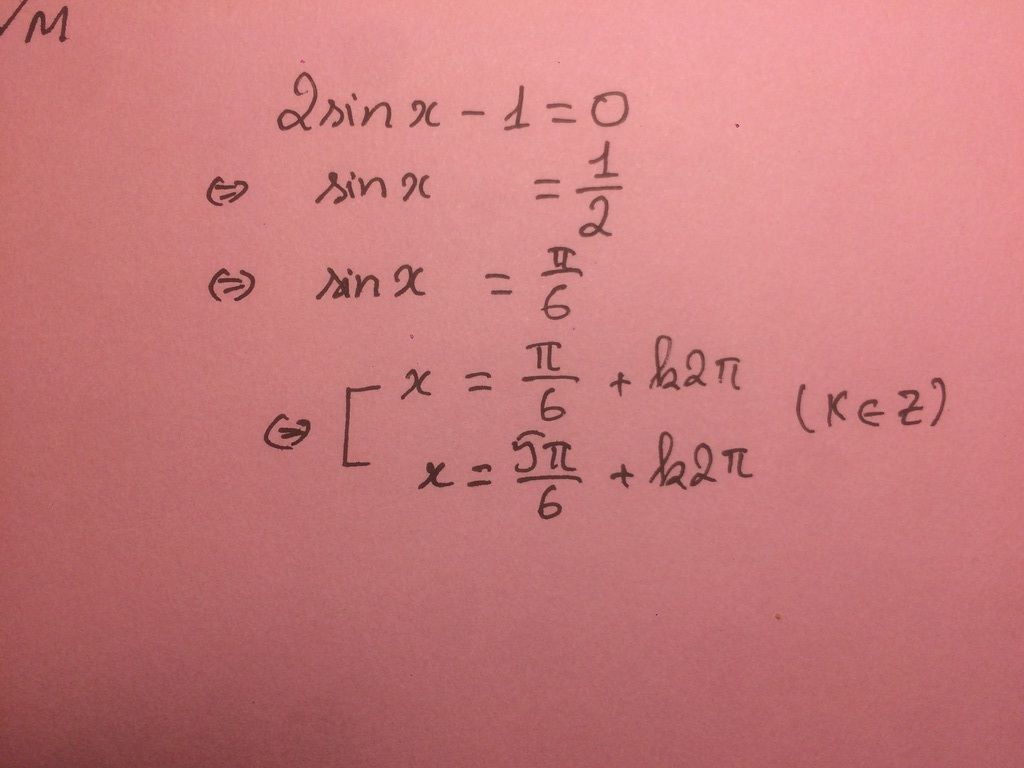 √M
2sin x - 1 = 0
⇔ sin x = 1/2
⇔ sin x = π/6
⇔ [ x = π/6 + k2π
x = 5π/6 + k2π (K ∈ Z)